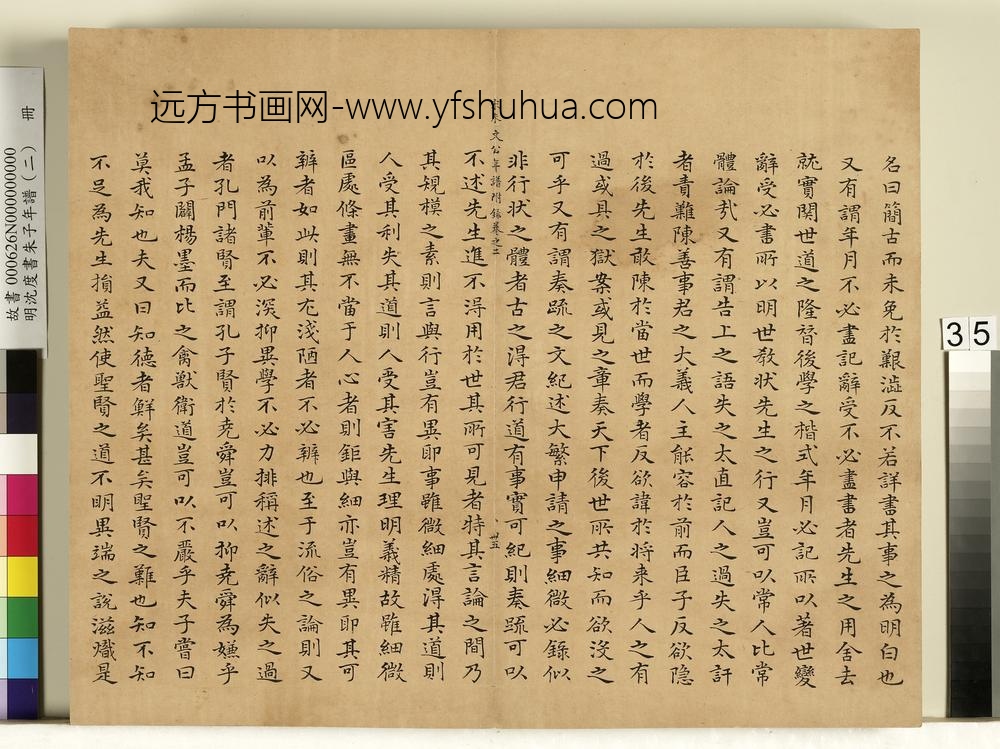 远方书画网-www.yfshuhua.com
名曰簡古而未免於艱澁反不若詳書其事之為明白也
又有謂年月不必盡記辭受不必盡書者先生之用舍去
就實関世道之隆替後學之楷式年月必記所以著世變
辭受必書所以明世教状先生之行又豈可以常人比常
體論㢤又有謂告上之語失之太直記人之過失之太訐
者責難陳善事君之大義人主能容於前而臣子反欲隐
於後先生敢陳於當世而學者反欲諱於将来乎人之有
過或具之獄案或見之章奏天下後世所共知而欲没之
可乎又有謂奏䟽之文紀述大繁申請之事細微必錄似
非行状之體者古之得君行道有事實可紀則奏䟽可以
文公年譜附錄卷之二
卅五
不述先生進不得用於世其所可見者特其言論之間乃
其規模之素則言與行豈有異即事雖微細處得其道則
人受其利失其道則人受其害先生理明義精故雖細微
區處條畫無不當于人心者則鉅與細亦豈有異即其可
辨者如此則其尤淺陋者不必辨也至于流俗之論則又
以為前軰不必深抑異學不必力排稱述之辭似失之過
者孔門諸賢至謂孔子賢於尭舜豈可以抑尭舜為嫌乎
孟子闢楊墨而比之禽獸衛道豈可以不嚴乎夫子嘗曰
莫我知也夫又曰知德者鮮矣甚矣聖賢之難也知不知
不足為先生損益然使聖賢之道不明異端之說滋熾是
故書 000626N000000000 冊
明沈度書朱子年譜(二)
35